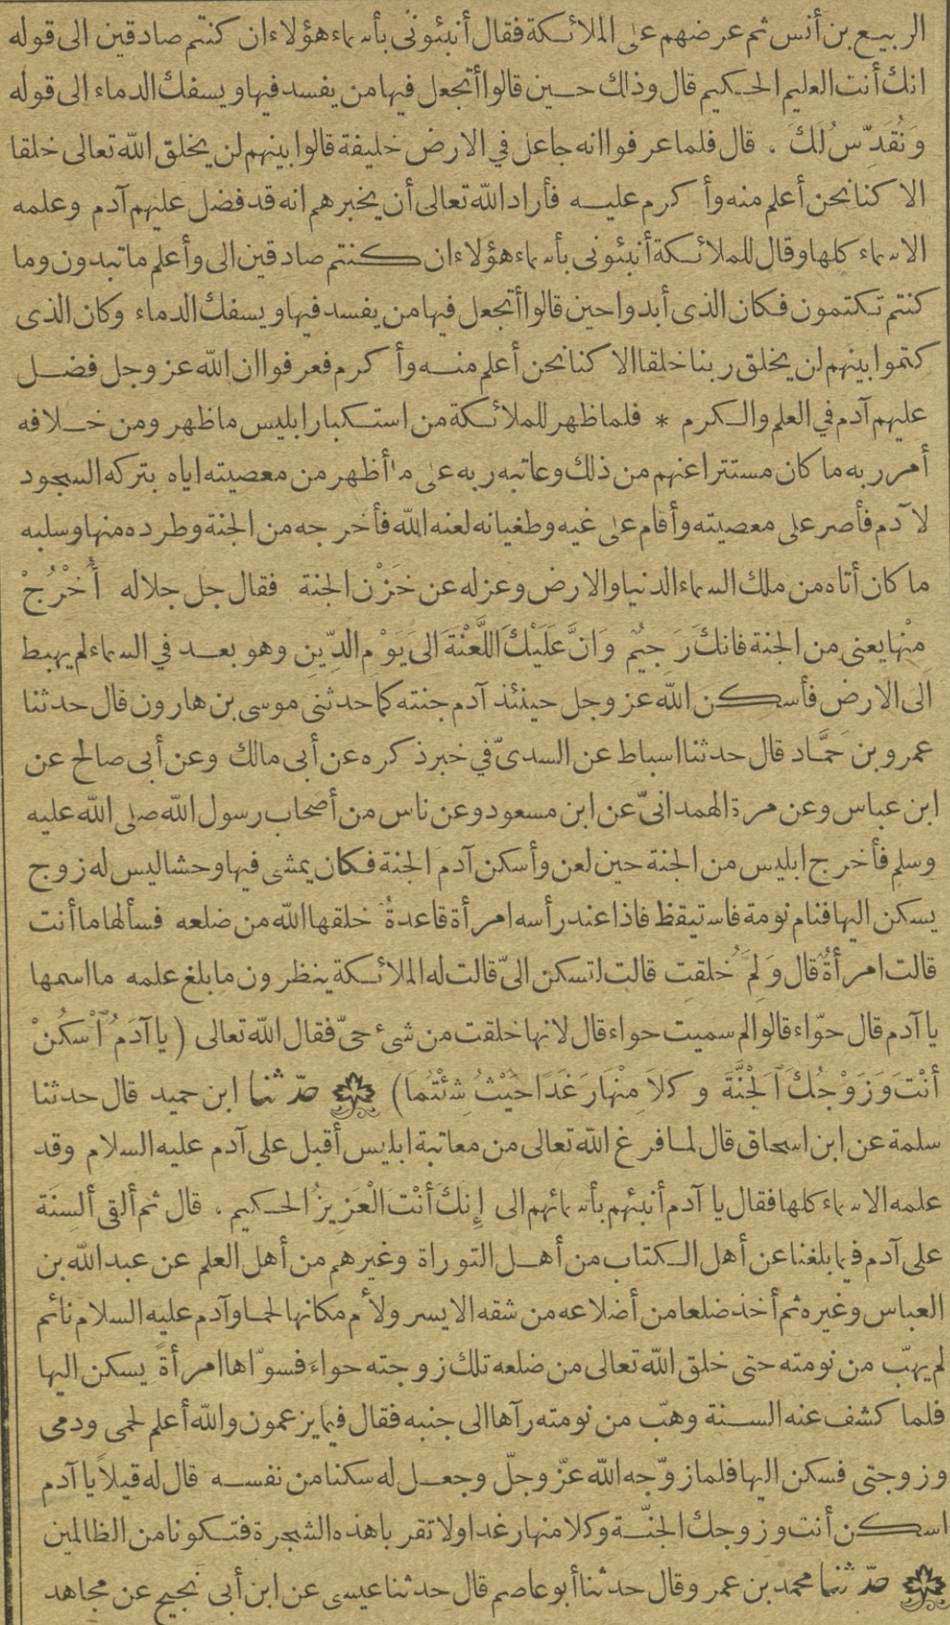 الربيع بن أنس ثم عرضهم على الملائكة فقال أنبئونى بأسماء هؤلاء ان كنتم صادقين الى قوله
انك أنت العليم الحكيم قال وذلك حين قالوا أتجعل فيها من يفسد فيها ويسفك الدماء الى قوله
وَنُقَدِّسُ لَكَ . قال فلما عرفوا انه جاعل في الارض خليفة قالوا بينهم لن يخلق الله تعالى خلقا
الا كنا نحن أعلم منه وأكرم عليه فأراد الله تعالى أن يخبرهم انه قد فضل عليهم آدم وعلمه
الاسماء كلها وقال للملائكة أنبئونى بأسماء هؤلاء ان كنتم صادقين الى وأعلم ما تبدون وما
كنتم تكتمون فكان الذى أبدوا حين قالوا أتجعل فيها من يفسد فيها ويسفك الدماء وكان الذى
كتموا بينهم لن يخلق ربنا خلقا الا كنا نحن أعلم منه وأكرم فعرفوا ان الله عز وجل فضل
عليهم آدم في العلم والكرم * فلما ظهر للملائكة من استكبار ابليس ما ظهر ومن خلافه
أمر ربه ما كان مستترا عنهم من ذلك وعاتبه ربه على ما أظهر من معصيته اياه بتركه السجود
لآدم فأصر على معصيته وأقام على غيه وطغيانه لعنه الله فأخرجه من الجنة وطرده منها وسلبه
ما كان أتاه من ملك السماء الدنيا والارض وعزله عن خَزْن الجنة فقال جل جلاله أُخْرُجْ
مِنْها يعنى من الجنة فانكَ رَجِيُم وَانَّ عَلَيْكَ اللَّعْنَةَ الىَ يَوْمِ الدِّينِ وهو بعد في السماء لم يهبط
الى الارض فأسكن الله عز وجل حينئذ آدم جنته كما حدثنى موسى بن هارون قال حدثنا
عمرو بن حَمَّاد قال حدثنا اسباط عن السدىّ في خبر ذكره عن أبى مالك وعن أبى صالح عن
ابن عباس وعن مرة الهمدانىّ عن ابن مسعود وعن ناس من أصحاب رسول الله صلى الله عليه
وسلم فأخرج ابليس من الجنة حين لعن وأسكن آدم الجنة فكان يمشى فيها وحشا ليس له زوج
يسكن اليها فنام نومة فاستيقظ فاذا عند رأسه امرأة قاعدةُ خلقها الله من ضلعه فسألها ما أنت
قالت امرأةٌ قال وَلِمَ خلقتِ قالت لتسكن الىّ قالت له الملائكة ينظرون ما بلغ علمه ما اسمها
يا آدم قال حوّاء قالوا لم سميت حواء قال لانها خلقت من شئ حىّ فقال الله تعالى (يا آدَمُ ٱسْكُنْ
أنْتَ وَزَوْجُكَ ٱلْجَنَّةَ وكلاَ مِنْهَا رَغَدًا حَيْثُ شِئْتُمَا) حدّثنا ابن حميد قال حدثنا
سلمة عن ابن اسحاق قال لما فرغ الله تعالى من معاتبة ابليس أقبل على آدم عليه السلام وقد
علمه الاسماء كلها فقال يا آدم أنبئهم بأسمائهم الى إِنكَ أنْتَ الْعَزِيزُ الحكيم . قال ثم ألقى ألسِنَة
على آدم فيما بلغنا عن أهل الكتاب من أهل التوراة وغيرهم من أهل العلم عن عبد الله بن
العباس وغيره ثم أخذ ضلعا من أضلاعه من شقه الايسر ولأم مكانها لحما وآدم عليه السلام نائم
لم يهبّ من نومته حتى خلق الله تعالى من ضلعه تلك زوجته حواءَ فسوّاها امرأةً يسكن اليها
فلما كشف عنه السنة وهبّ من نومته رآها الى جنبه فقال فيما يزعمون والله أعلم لحمى ودمى
وزوجتى فسكن اليها فلما زوّجه الله عزّ وجلّ وجعل له سكنا من نفسه قال له قيلاً يا آدم
اسكن أنت وزوجك الجنّة وكلا منها رغدا ولا تقربا هذه الشجرة فتكونا من الظالمين
حدّثنا محمد بن عمر وقال حدثنا أبو عاصم قال حدثنا عيسى عن ابن أبى نجيح عن مجاهد